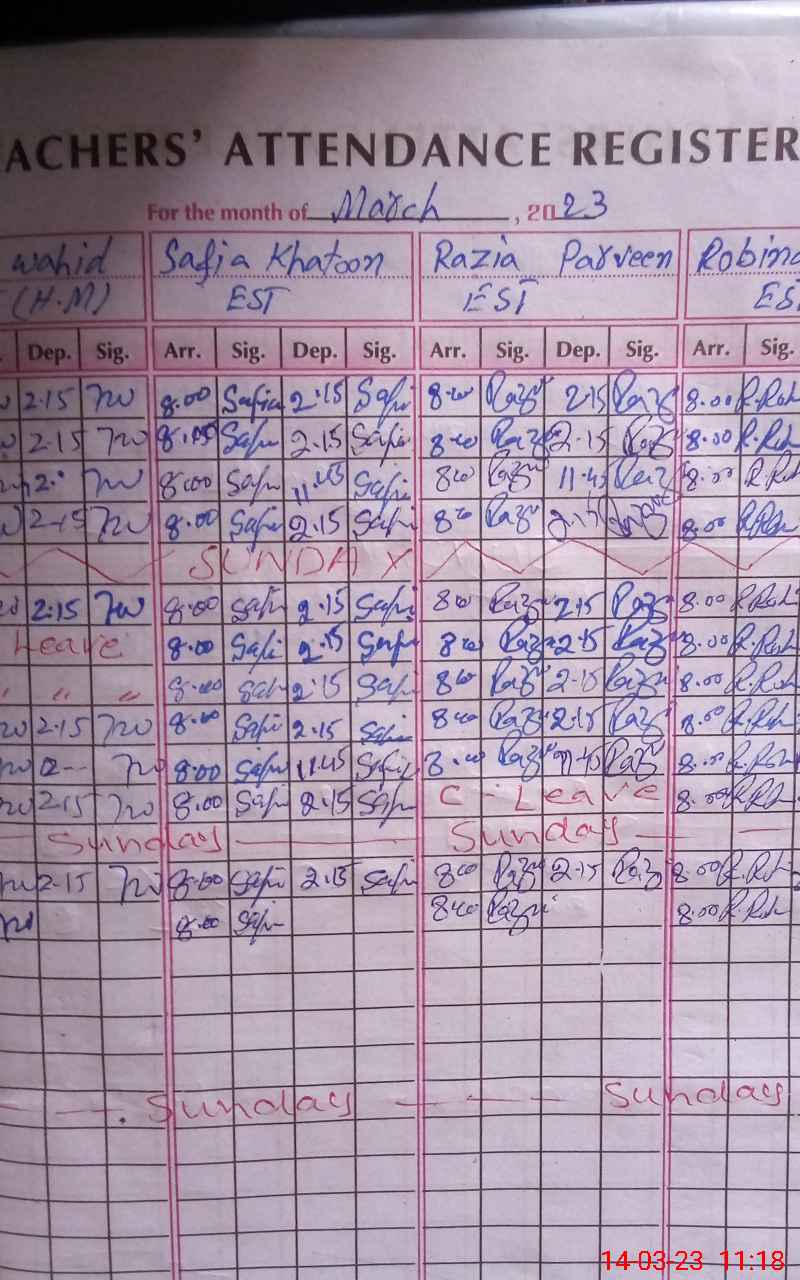 ACHERS' ATTENDANCE REGISTER
For the month of March, 2023
wahid Safia Khatoon Razia Parveen Robina
(H.M) EST EST ES
Dep. Sig. Arr. Sig. Dep. Sig. Arr. Sig. Dep. Sig. Arr. Sig.
2.15 8.00 Safia 2.15 Safi 800 Raz 2.15 Raz 8.00 R.Rub
2.15 Safi 2.15 Safi 800 Raz 2.15 Raz 8.00 R.Rub
8.00 Safi 11.45 Safi 800 Raz 11.45 Raz R.Rub
2-15 8.00 Safi 2.15 Safi 800 Raz 8.00 R.Rub
SUNDAY
2.15 8.00 Safi 2.15 Safi 800 Raz 2.15 Raz 8.00 R.Rub
Leave 8.00 Safi 2.15 Safi 800 Raz 2.15 Raz 8.00 R.Rub
" " " 8.00 Safi 2.15 Safi 800 Raz 2.15 Raz 8.00 R.Rub
2.15 8.00 Safi 2.15 Safi 800 Raz 2.15 Raz 8.00 R.Rub
8.00 Safi 11.45 Safi 8.00 Raz Raz 8.00 R.Rub
2.15 8.00 Safi 2.15 Safi C-Leave 8.00 R.Rub
Sunday Sunday
2.15 8.00 Safi 2.15 Safi 800 Raz 2.15 Raz 8.00 R.Rub
8.00 Safi 800 Raz 8.00 R.Rub
Sunday Sunday
14-03-23 11:18